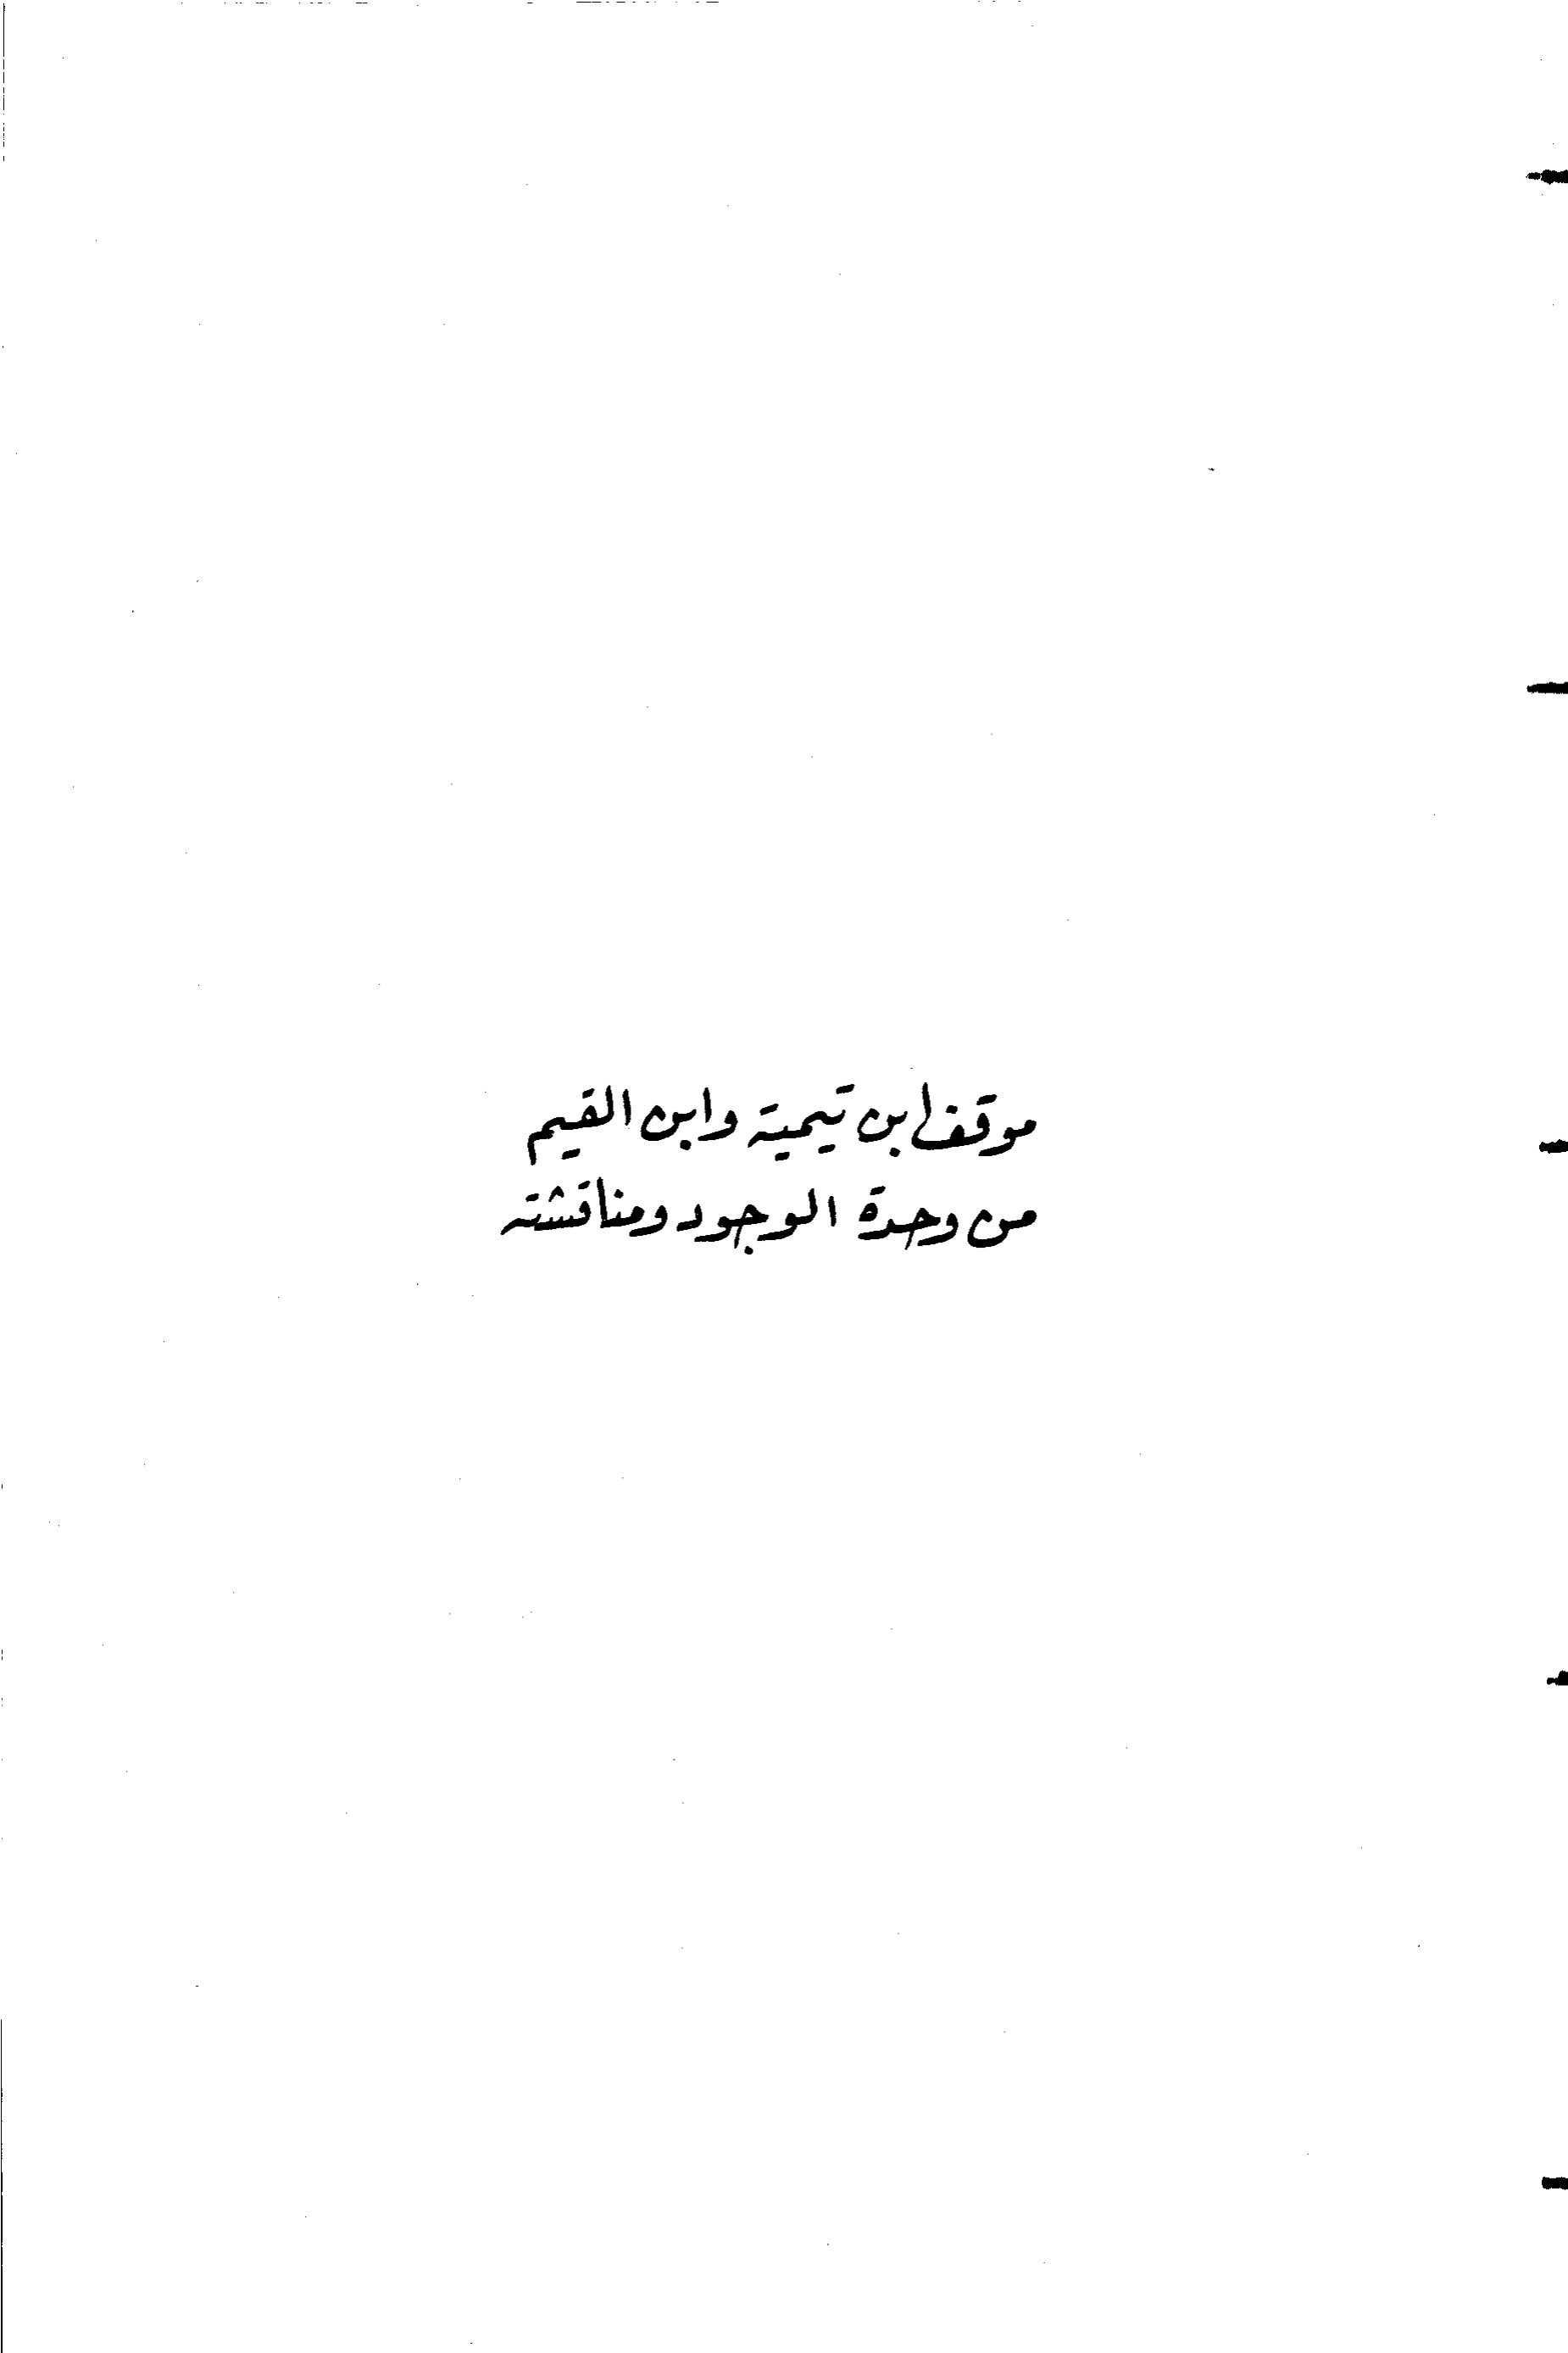 موقف ابن تيمية وابن القيم
من وحدة الوجود ومناقشته